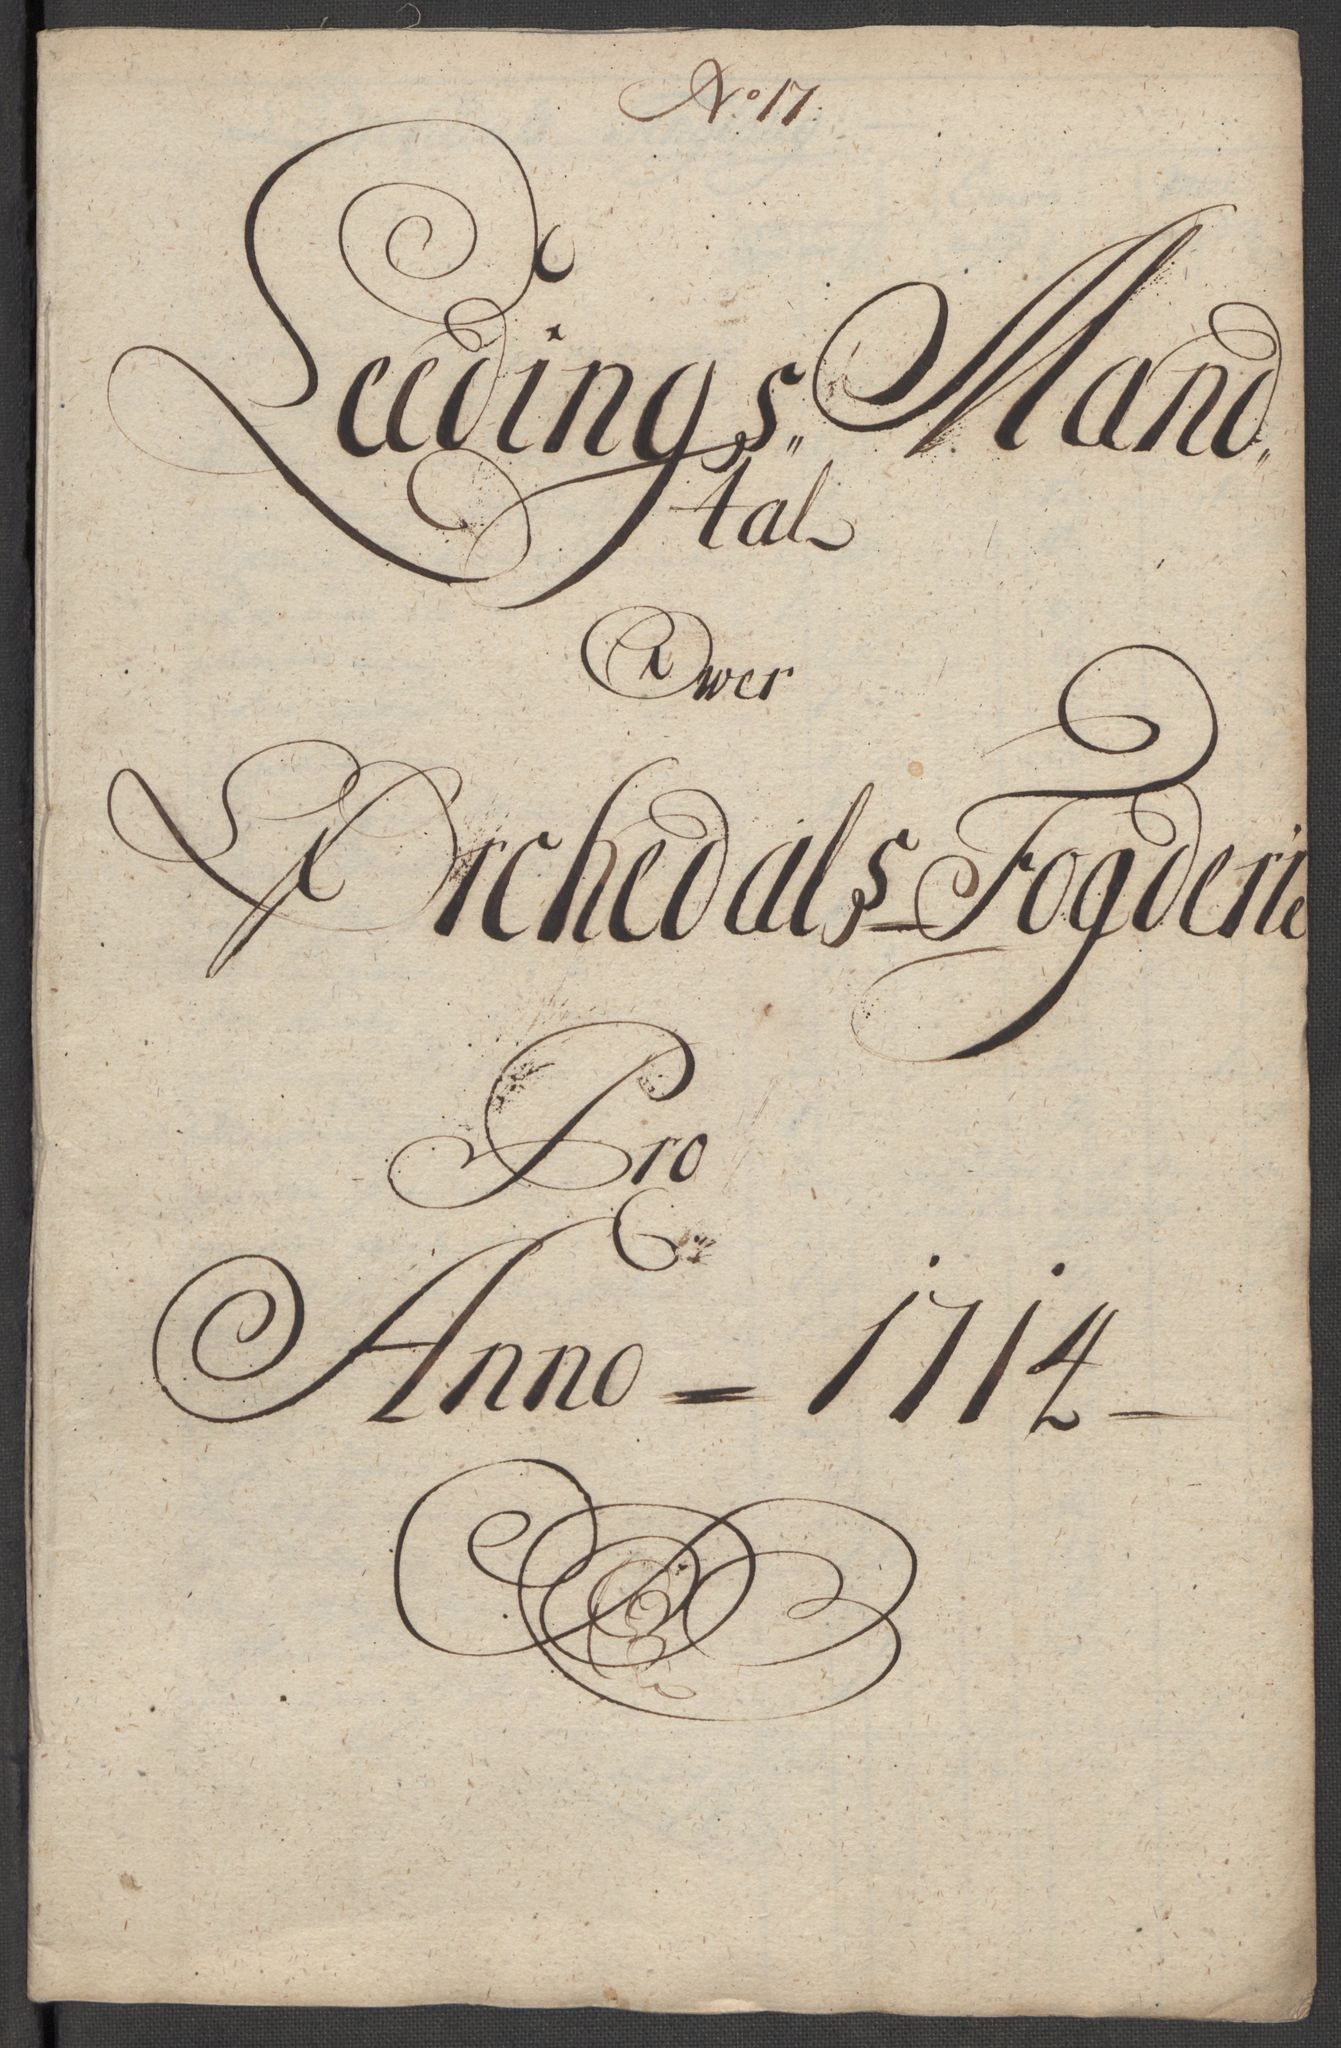 No 17.
Leedings„ Mand„
tal
Ower
Orchedals Fogderie
Pro
Anno - 1714 -